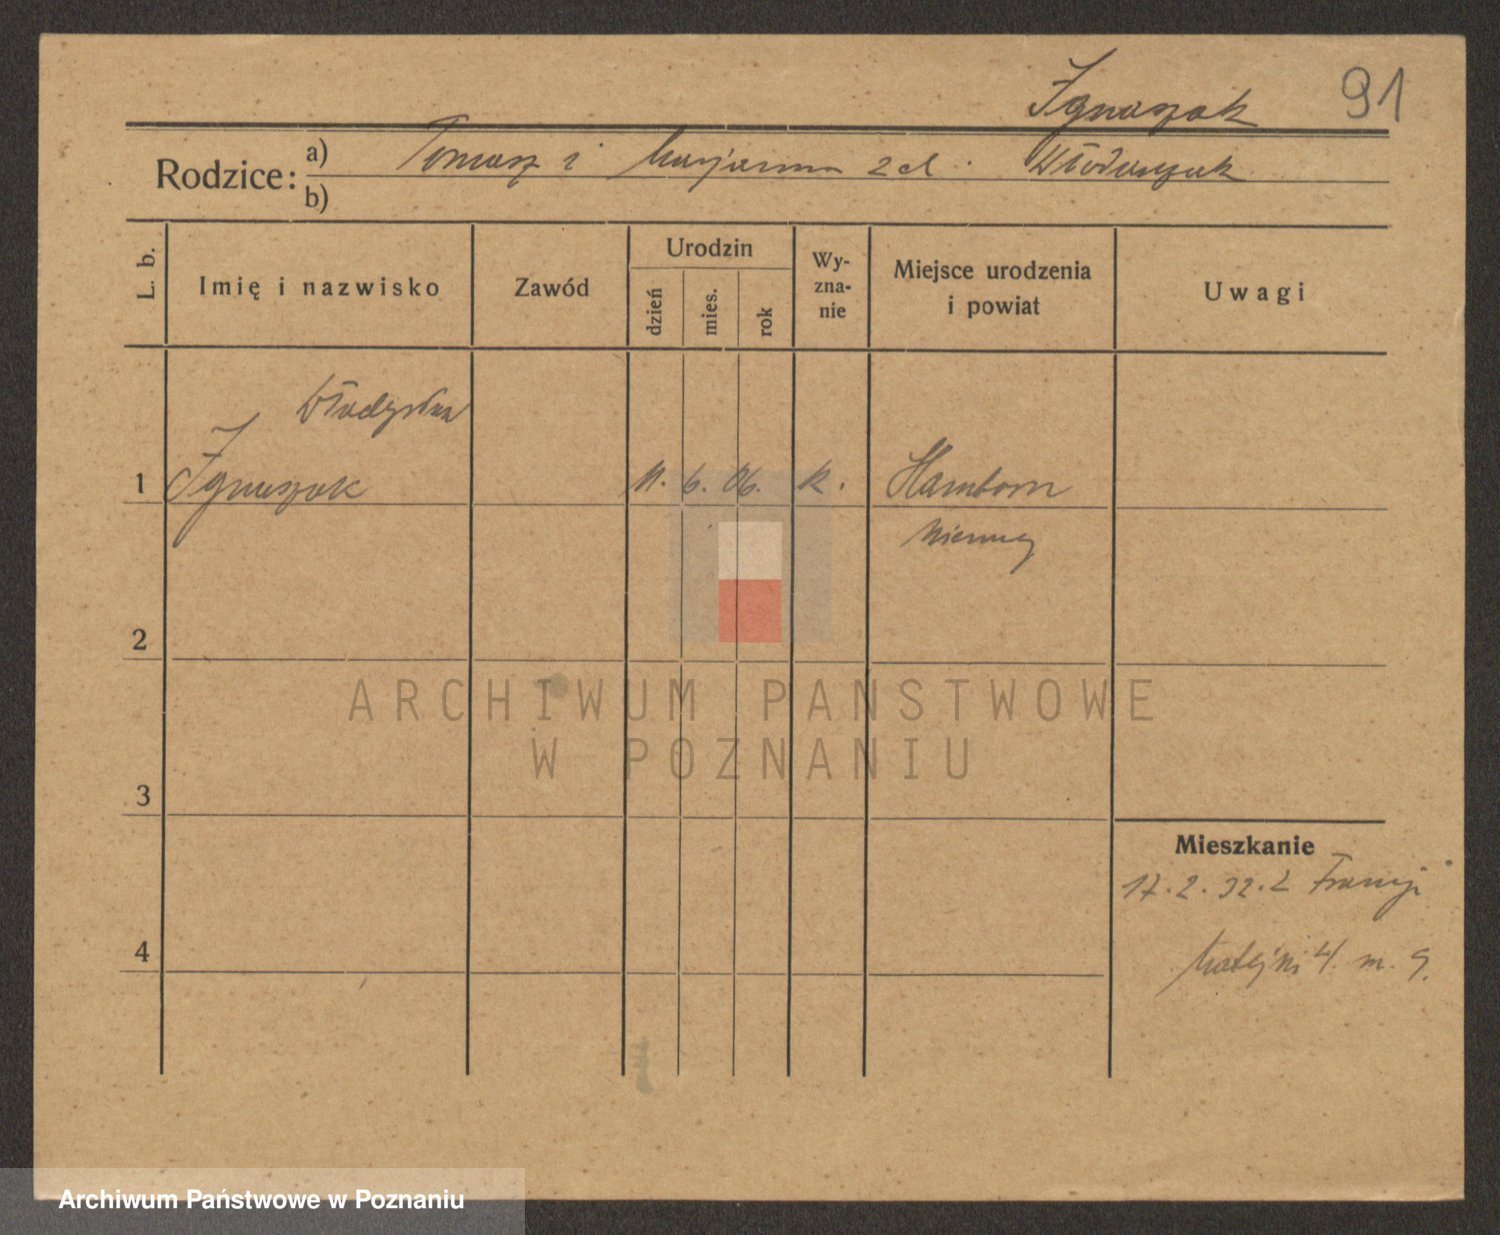 Ignaszak
91
Rodzice: a) Tomasz i Marjanna zd. Włodarczak
b)
L. b.
Imię i nazwisko
Zawód
Urodzin
dzień
mies.
rok
Wy-
zna-
nie
Miejsce urodzenia
i powiat
Uwagi
Władysława
1 Ignaszak 11. 6. 06. k. Hamborn
Niemcy
2
3
4
Mieszkanie
17.2.32. z Francji
Matejki 4. m. 9.
ARCHIWUM PAŃSTWOWE
W POZNANIU
Archiwum Państwowe w Poznaniu